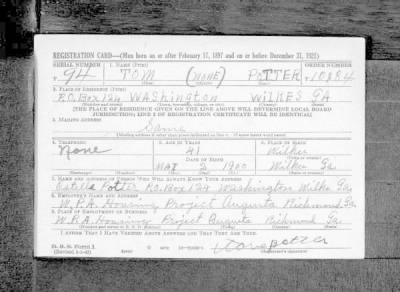 REGISTRATION CARD—(Men born on or after February 17, 1897 and on or before December 31, 1921)
SERIAL NUMBER 1. NAME (Print) ORDER NUMBER
T 94 TOM (NONE) POTTER 10884
2. PLACE OF RESIDENCE (Print)
P.O. Box 124 Washington Wilkes GA
[THE PLACE OF RESIDENCE GIVEN ON THE LINE ABOVE WILL DETERMINE LOCAL BOARD
JURISDICTION; LINE 2 OF REGISTRATION CERTIFICATE WILL BE IDENTICAL]
3. MAILING ADDRESS
Same
[Mailing address if other than place indicated on line 2. If same insert word same]
4. TELEPHONE 5. AGE IN YEARS 6. PLACE OF BIRTH
None 41 Wilkes
DATE OF BIRTH
Mar 2 1900 Wilkes Ga
7. NAME AND ADDRESS OF PERSON WHO WILL ALWAYS KNOW YOUR ADDRESS
Estella Potter P.O. Box 124 Washington Wilkes Ga.
8. EMPLOYER'S NAME AND ADDRESS
W.P.A. Housing Project Augusta Richmond Ga.
9. PLACE OF EMPLOYMENT OR BUSINESS
W.P.A. Housing Project Augusta Richmond Ga.
I AFFIRM THAT I HAVE VERIFIED ABOVE ANSWERS AND THAT THEY ARE TRUE.
D. S. S. Form 1
potter